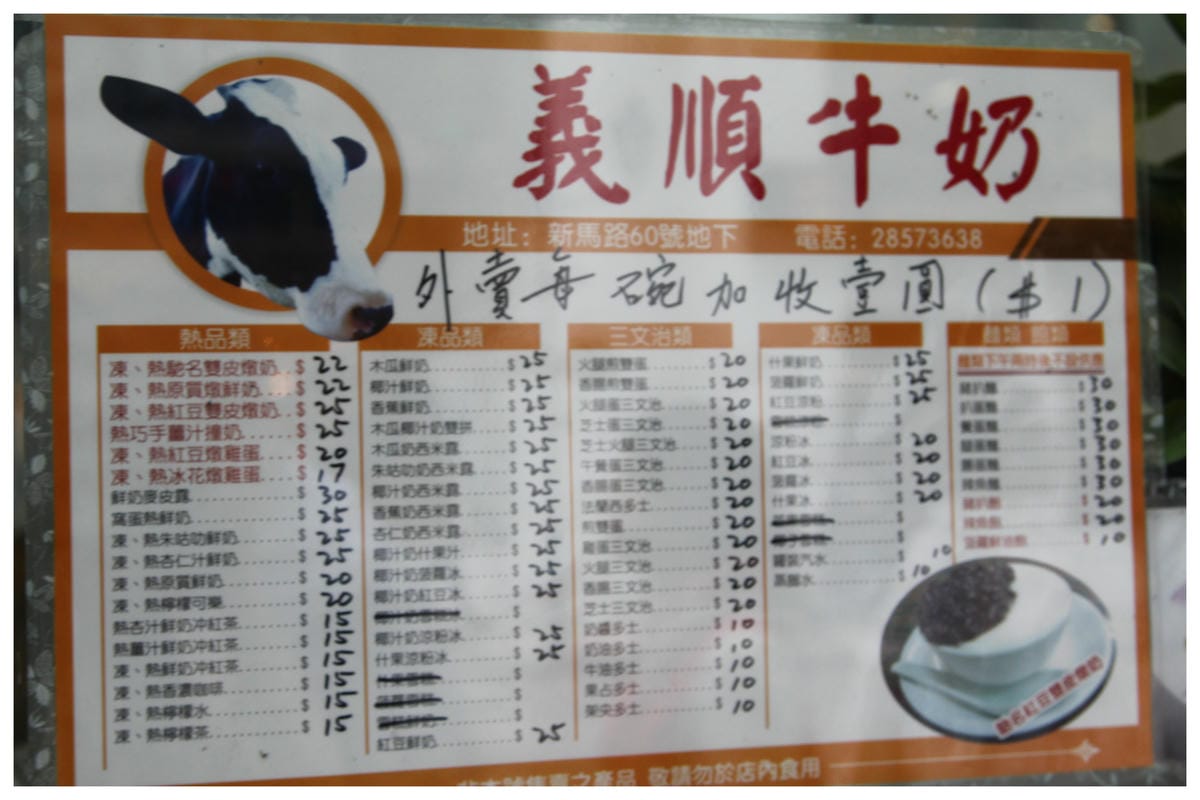 義順牛奶
地址：新馬路60號地下 電話：28573638
外賣每碗加收壹圓（$1）
熱品類
凍、熱馳名雙皮燉奶 $22
凍、熱原質燉鮮奶 $22
凍、熱紅豆雙皮燉奶 $25
熱巧手薑汁撞奶 $25
凍、熱紅豆燉雞蛋 $20
凍、熱冰花燉雞蛋 $17
鮮奶麥皮露 $30
窩蛋熱鮮奶 $25
凍、熱朱咕叻鮮奶 $25
凍、熱杏仁汁鮮奶 $25
凍、熱原質鮮奶 $20
凍、熱檸檬可樂 $20
熱杏汁鮮奶冲紅茶 $15
熱薑汁鮮奶冲紅茶 $15
凍、熱鮮奶冲紅茶 $15
凍、熱香濃咖啡 $15
凍、熱檸檬水 $15
凍、熱檸檬茶 $15
凍品類
木瓜鮮奶 $25
椰汁鮮奶 $25
香蕉鮮奶 $25
木瓜椰汁奶雙拼 $25
木瓜奶西米露 $25
朱咕叻奶西米露 $25
椰汁奶西米露 $25
香蕉奶西米露 $25
杏仁奶西米露 $25
椰汁奶什果汁 $25
椰汁奶菠蘿冰 $25
椰汁奶紅豆冰 $25
椰汁奶涼粉冰 $25
什果涼粉冰 $25
紅豆鮮奶 $25
三文治類
火腿煎雙蛋 $20
香腸煎雙蛋 $20
火腿蛋三文治 $20
芝士蛋三文治 $20
芝士火腿三文治 $20
午餐蛋三文治 $20
香腸蛋三文治 $20
法蘭西多士 $20
煎雙蛋 $20
雞蛋三文治 $20
火腿三文治 $20
香腸三文治 $20
芝士三文治 $20
奶醬多士 $10
奶油多士 $10
牛油多士 $10
果占多士 $10
架央多士 $10
凍品類
什果鮮奶 $25
菠蘿鮮奶 $25
紅豆涼粉 $25
涼粉冰 $20
紅豆冰 $20
菠蘿冰 $20
什果冰 $20
罐裝汽水 $10
蒸餾水 $10
麵類 飽類
麵類下午兩時後不設供應
$30
$30
$30
$30
$30
$30
$20
$20
$10
馳名紅豆雙皮燉奶
非本號售賣之產品 敬請勿於店內食用